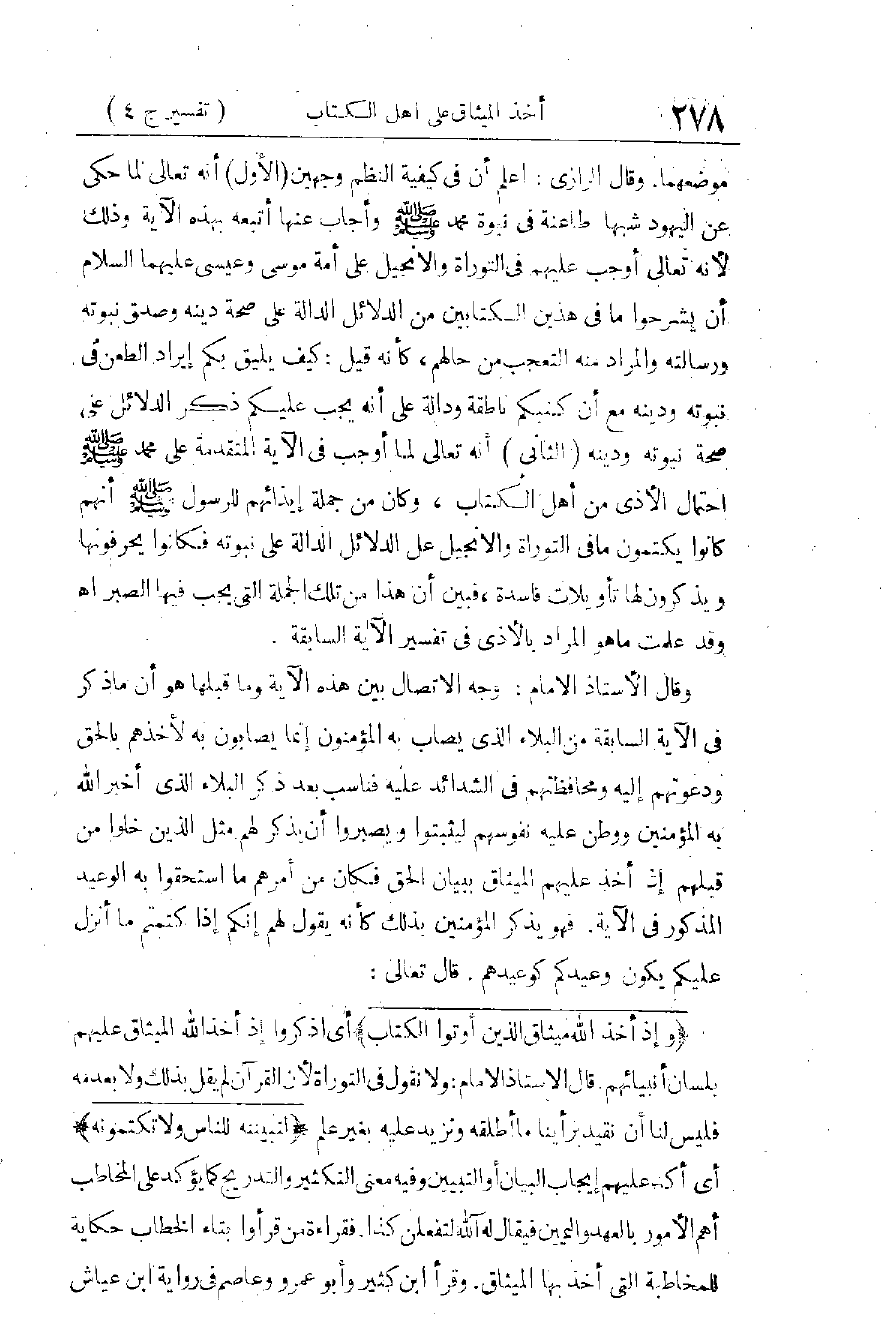 ٢٧٨ أخذ الميثاق على اهل الكتاب ( تفسير ج ٤ )
موضعهما. وقال الرازى : اعلم أن فى كيفية النظم وجهين (الأول) أنه تعالى لما حكى
عن اليهود شبها طاعنة فى نبوة محمد ﷺ وأجاب عنها أتبعه بهذه الآية وذلك
لأنه تعالى أوجب عليهم فى التوراة والانجيل على أمة موسى وعيسى عليهما السلام
أن يشرحوا ما فى هذين الكتابين من الدلائل الدالة على صحة دينه وصدق نبوته
ورسالته والمراد منه التعجب من حالهم ، كأنه قيل : كيف يليق بكم إيراد الطعن فى
نبوته ودينه مع أن كتبكم ناطقة ودالة على أنه يجب عليكم ذكر الدلائل على
صحة نبوته ودينه ( الثانى ) أنه تعالى لما أوجب فى الآية المتقدمة على محمد ﷺ
احتمال الأذى من أهل الكتاب ، وكان من جملة إيذائهم للرسول ﷺ أنهم
كانوا يكتمون مافى التوراة والانجيل على الدلائل الدالة على نبوته فكانوا يحرفونها
ويذكرون لها تأويلات فاسدة ، فبين أن هذا من تلك الجملة التى يجب فيها الصبر اهـ
وقد علمت ماهو المراد بالأذى فى تفسير الآية السابقة .
وقال الأستاذ الامام : وجه الاتصال بين هذه الآية وما قبلها هو أن ماذكر
فى الآية السابقة من البلاء الذى يصاب به المؤمنون إنما يصابون به لأخذهم بالحق
ودعوتهم إليه ومحافظتهم فى الشدائد عليه فناسب بعد ذكر البلاء الذى أخبر الله
به المؤمنين ووطن عليه نفوسهم ليثبتوا ويصبروا أن يذكر لهم مثل الذين خلوا من
قبلهم إذ أخذ عليهم الميثاق ببيان الحق فكان من أمرهم ما استحقوا به الوعيد
المذكور فى الآية. فهو يذكر المؤمنين بذلك كأنه يقول لهم إنكم إذا كتمتم ما أنزل
عليكم يكون وعيدكم كوعيدهم . قال تعالى :
﴿وإذ أخذ الله ميثاق الذين أوتوا الكتاب﴾ أى اذكروا إذ أخذ الله الميثاق عليهم
بلسان أنبيائهم. قال الاستاذ الامام : ولا نقول فى التوراة لأن القرآن لم يقل بذلك ولا بعدمه
فليس لنا أن نقيد برأينا ما أطلقه ونزيد عليه بغير علم ﴿لتبيننه للناس ولا تكتمونه﴾
أى أكد عليهم إيجاب البيان أو التبيين وفيه معنى التكثير والتدريج كما يؤكد على المخاطب
أهم الأمور بالعهد واليمين فيقال له آلله لتفعلن كذا . فقراءة من قرأوا بتاء الخطاب حكاية
للمخاطبة التى أخذ بها الميثاق. وقرأ ابن كثير وأبو عمرو وعاصم فى رواية ابن عياش